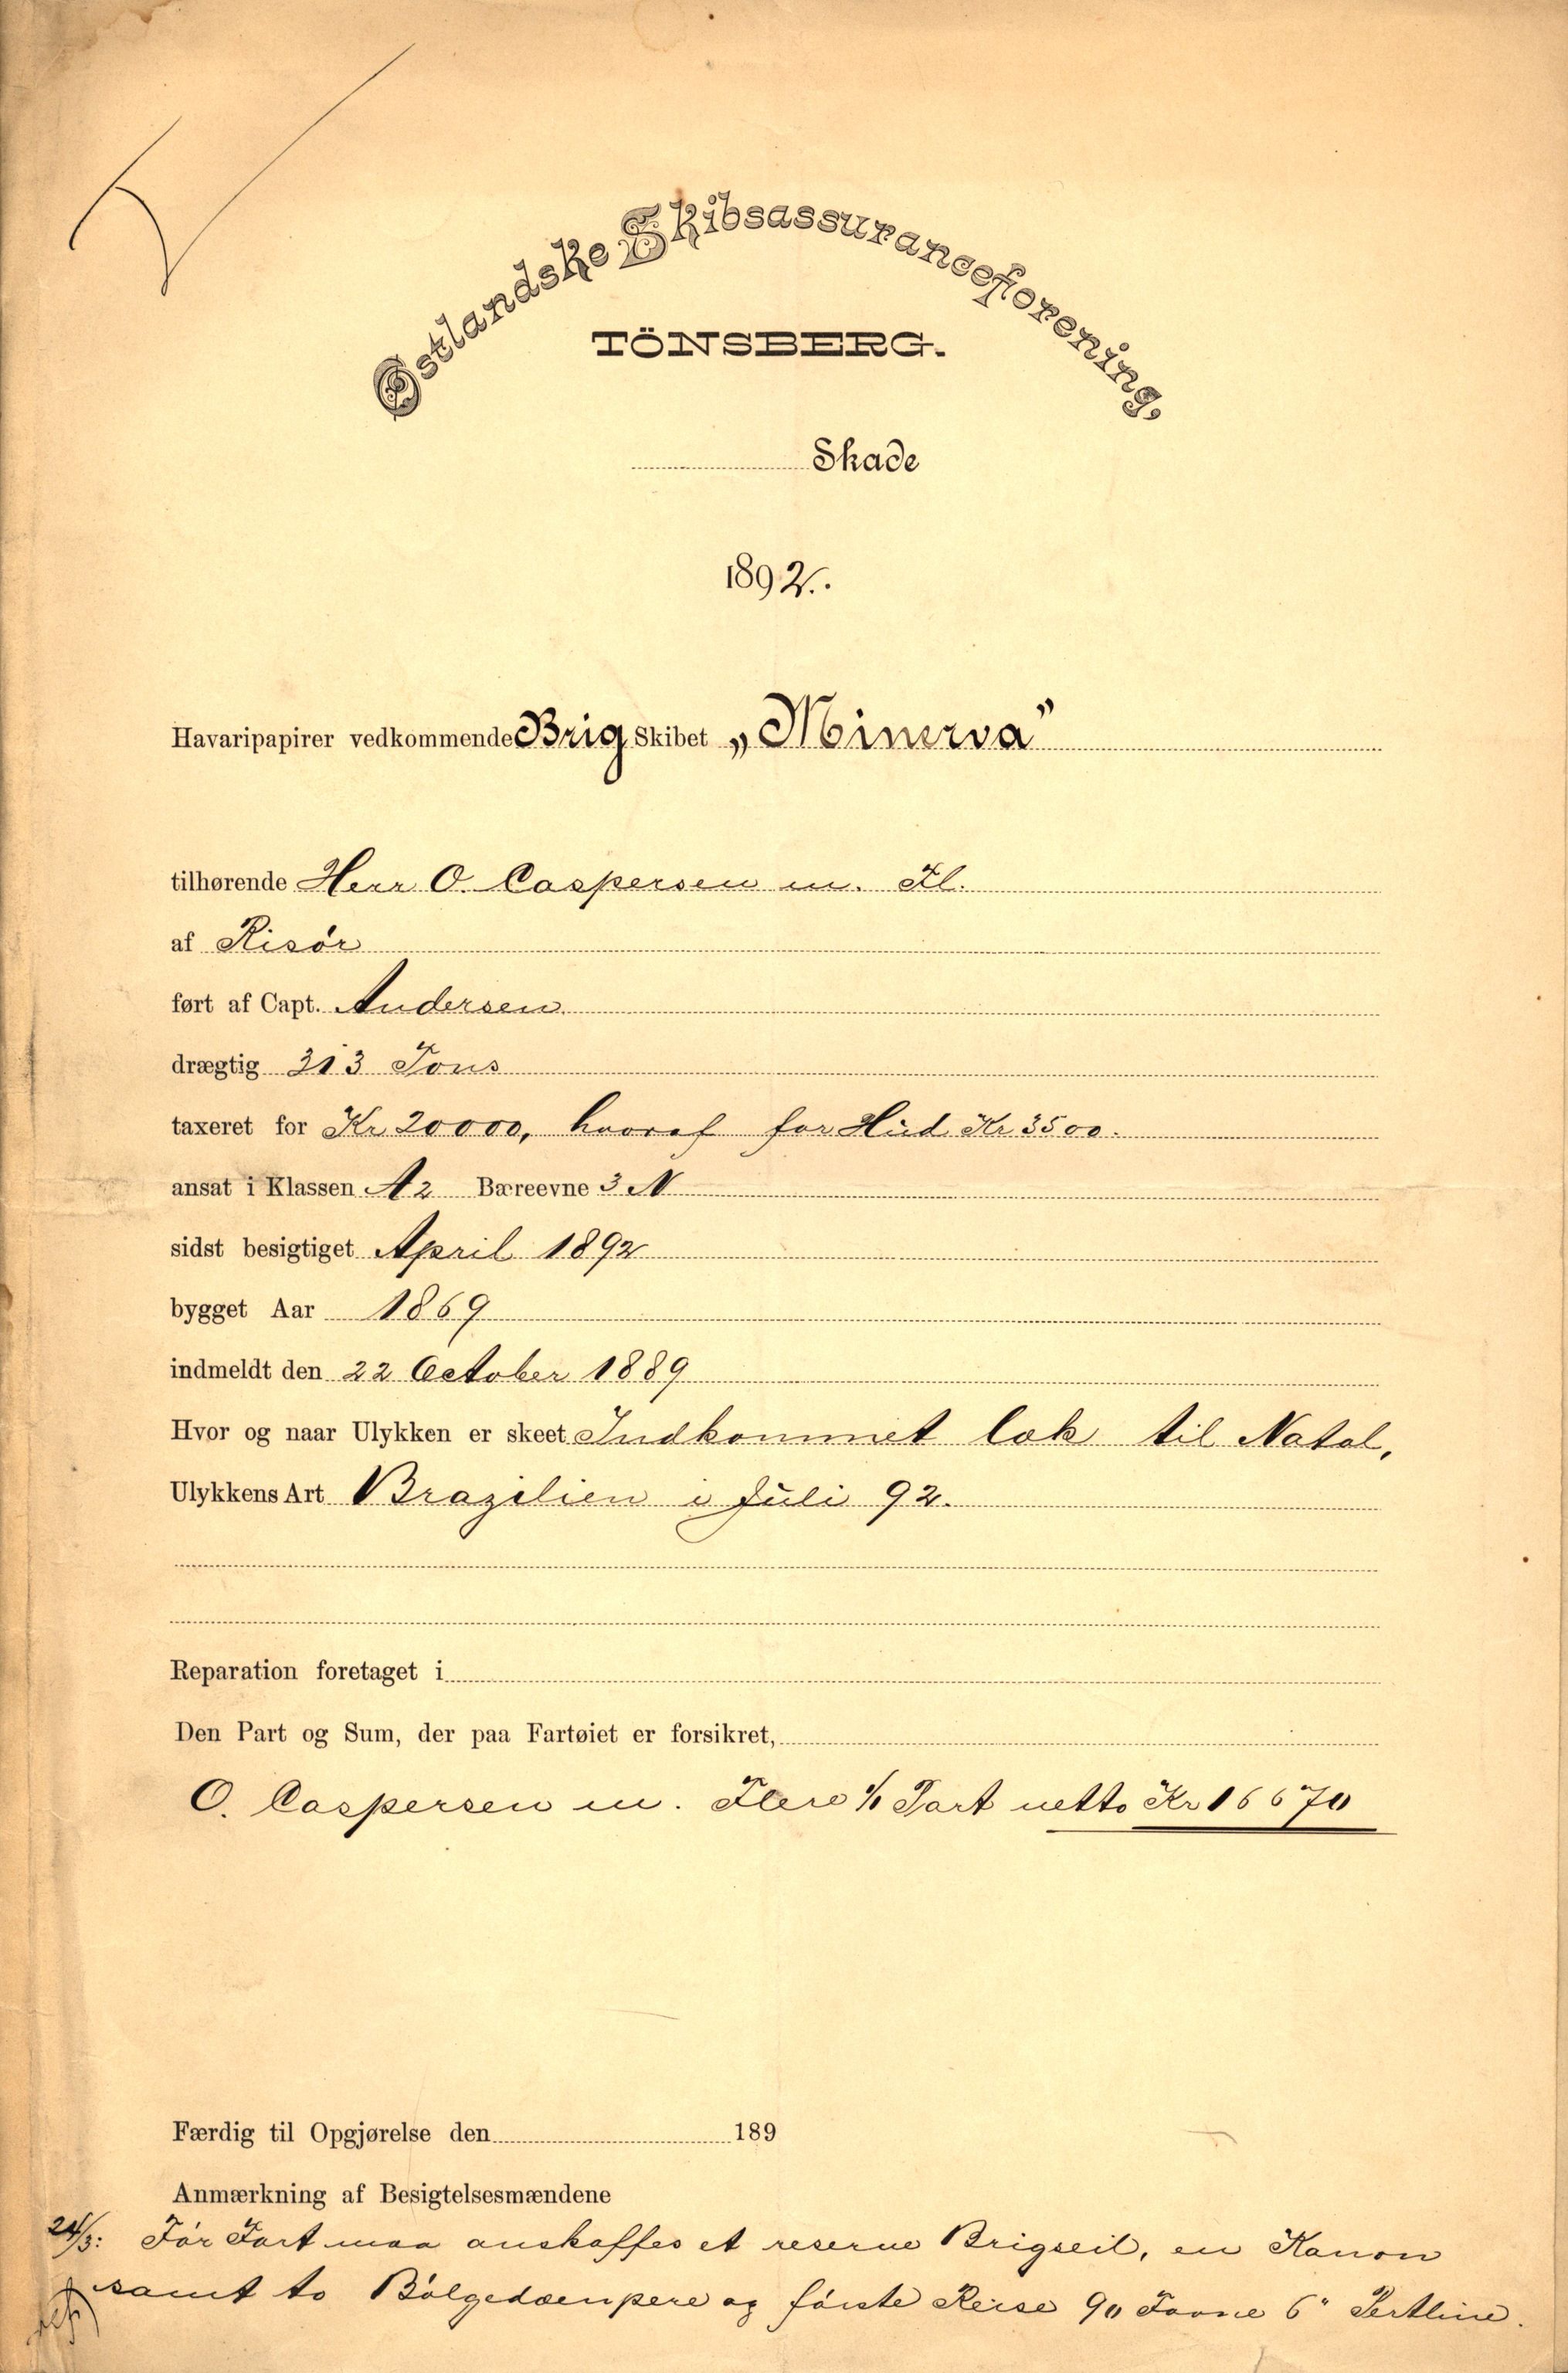 Østlandske Skibsassuranceforening,
TÖNSBERG.
Skade
1892.
Havaripapirer vedkommende Brig Skibet „Minerva"
tilhørende Herr O. Caspersen m. Fl.
af Risör
ført af Capt. Andersen.
drægtig 313 Tons
taxeret for Kr 20000, hvoraf for Hud Kr 3500.
ansat i Klassen A2 Bæreevne 3 N
sidst besigtiget April 1892
bygget Aar 1869
indmeldt den 22 October 1889
Hvor og naar Ulykken er skeet Indkommet læk til Natal,
Ulykkens Art Brazilien i Juli 92.
Reparation foretaget i
Den Part og Sum, der paa Fartøiet er forsikret,
O. Caspersen m. Flere 1/1 Part netto Kr 16670
Færdig til Opgjørelse den 189
Anmærkning af Besigtelsesmændene
24/3: För Fart maa anskaffes et reserve Brigseil, en Kanon
samt to Bölgedæmpere og förste Reise 90 Favne 6" Pertline.